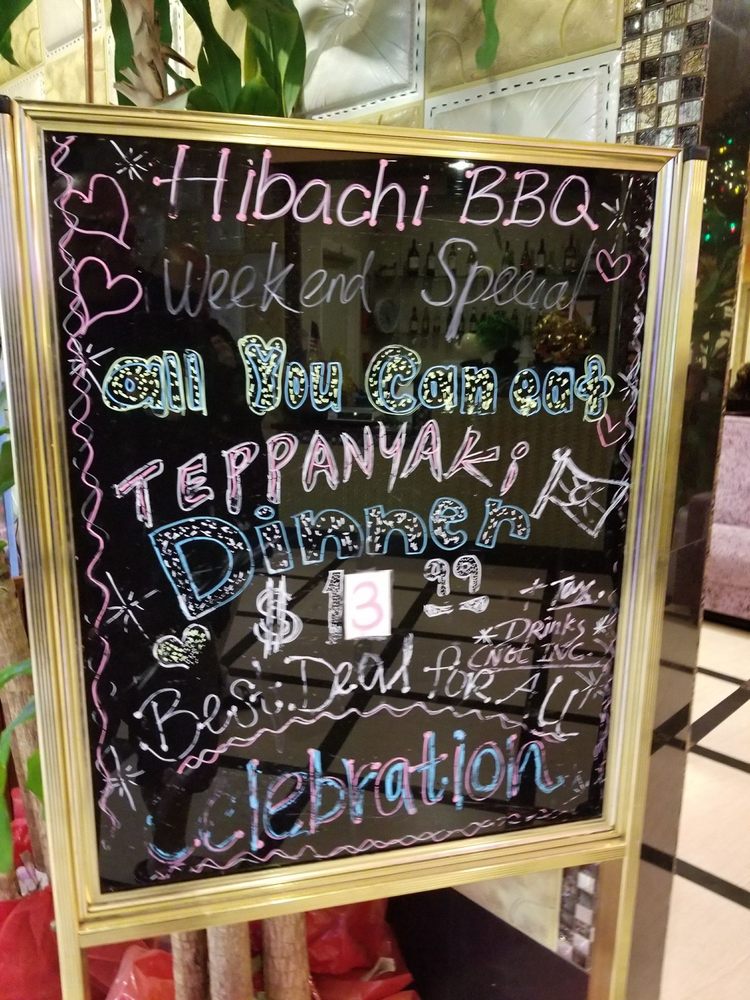 Hibachi BBQ
Weekend Special
all You Can eat
TEPPANYAKi
Dinner
$ 13 99
+ Tax.
* DRinks *
(Not INC.
Best Deal foR All
Celebration